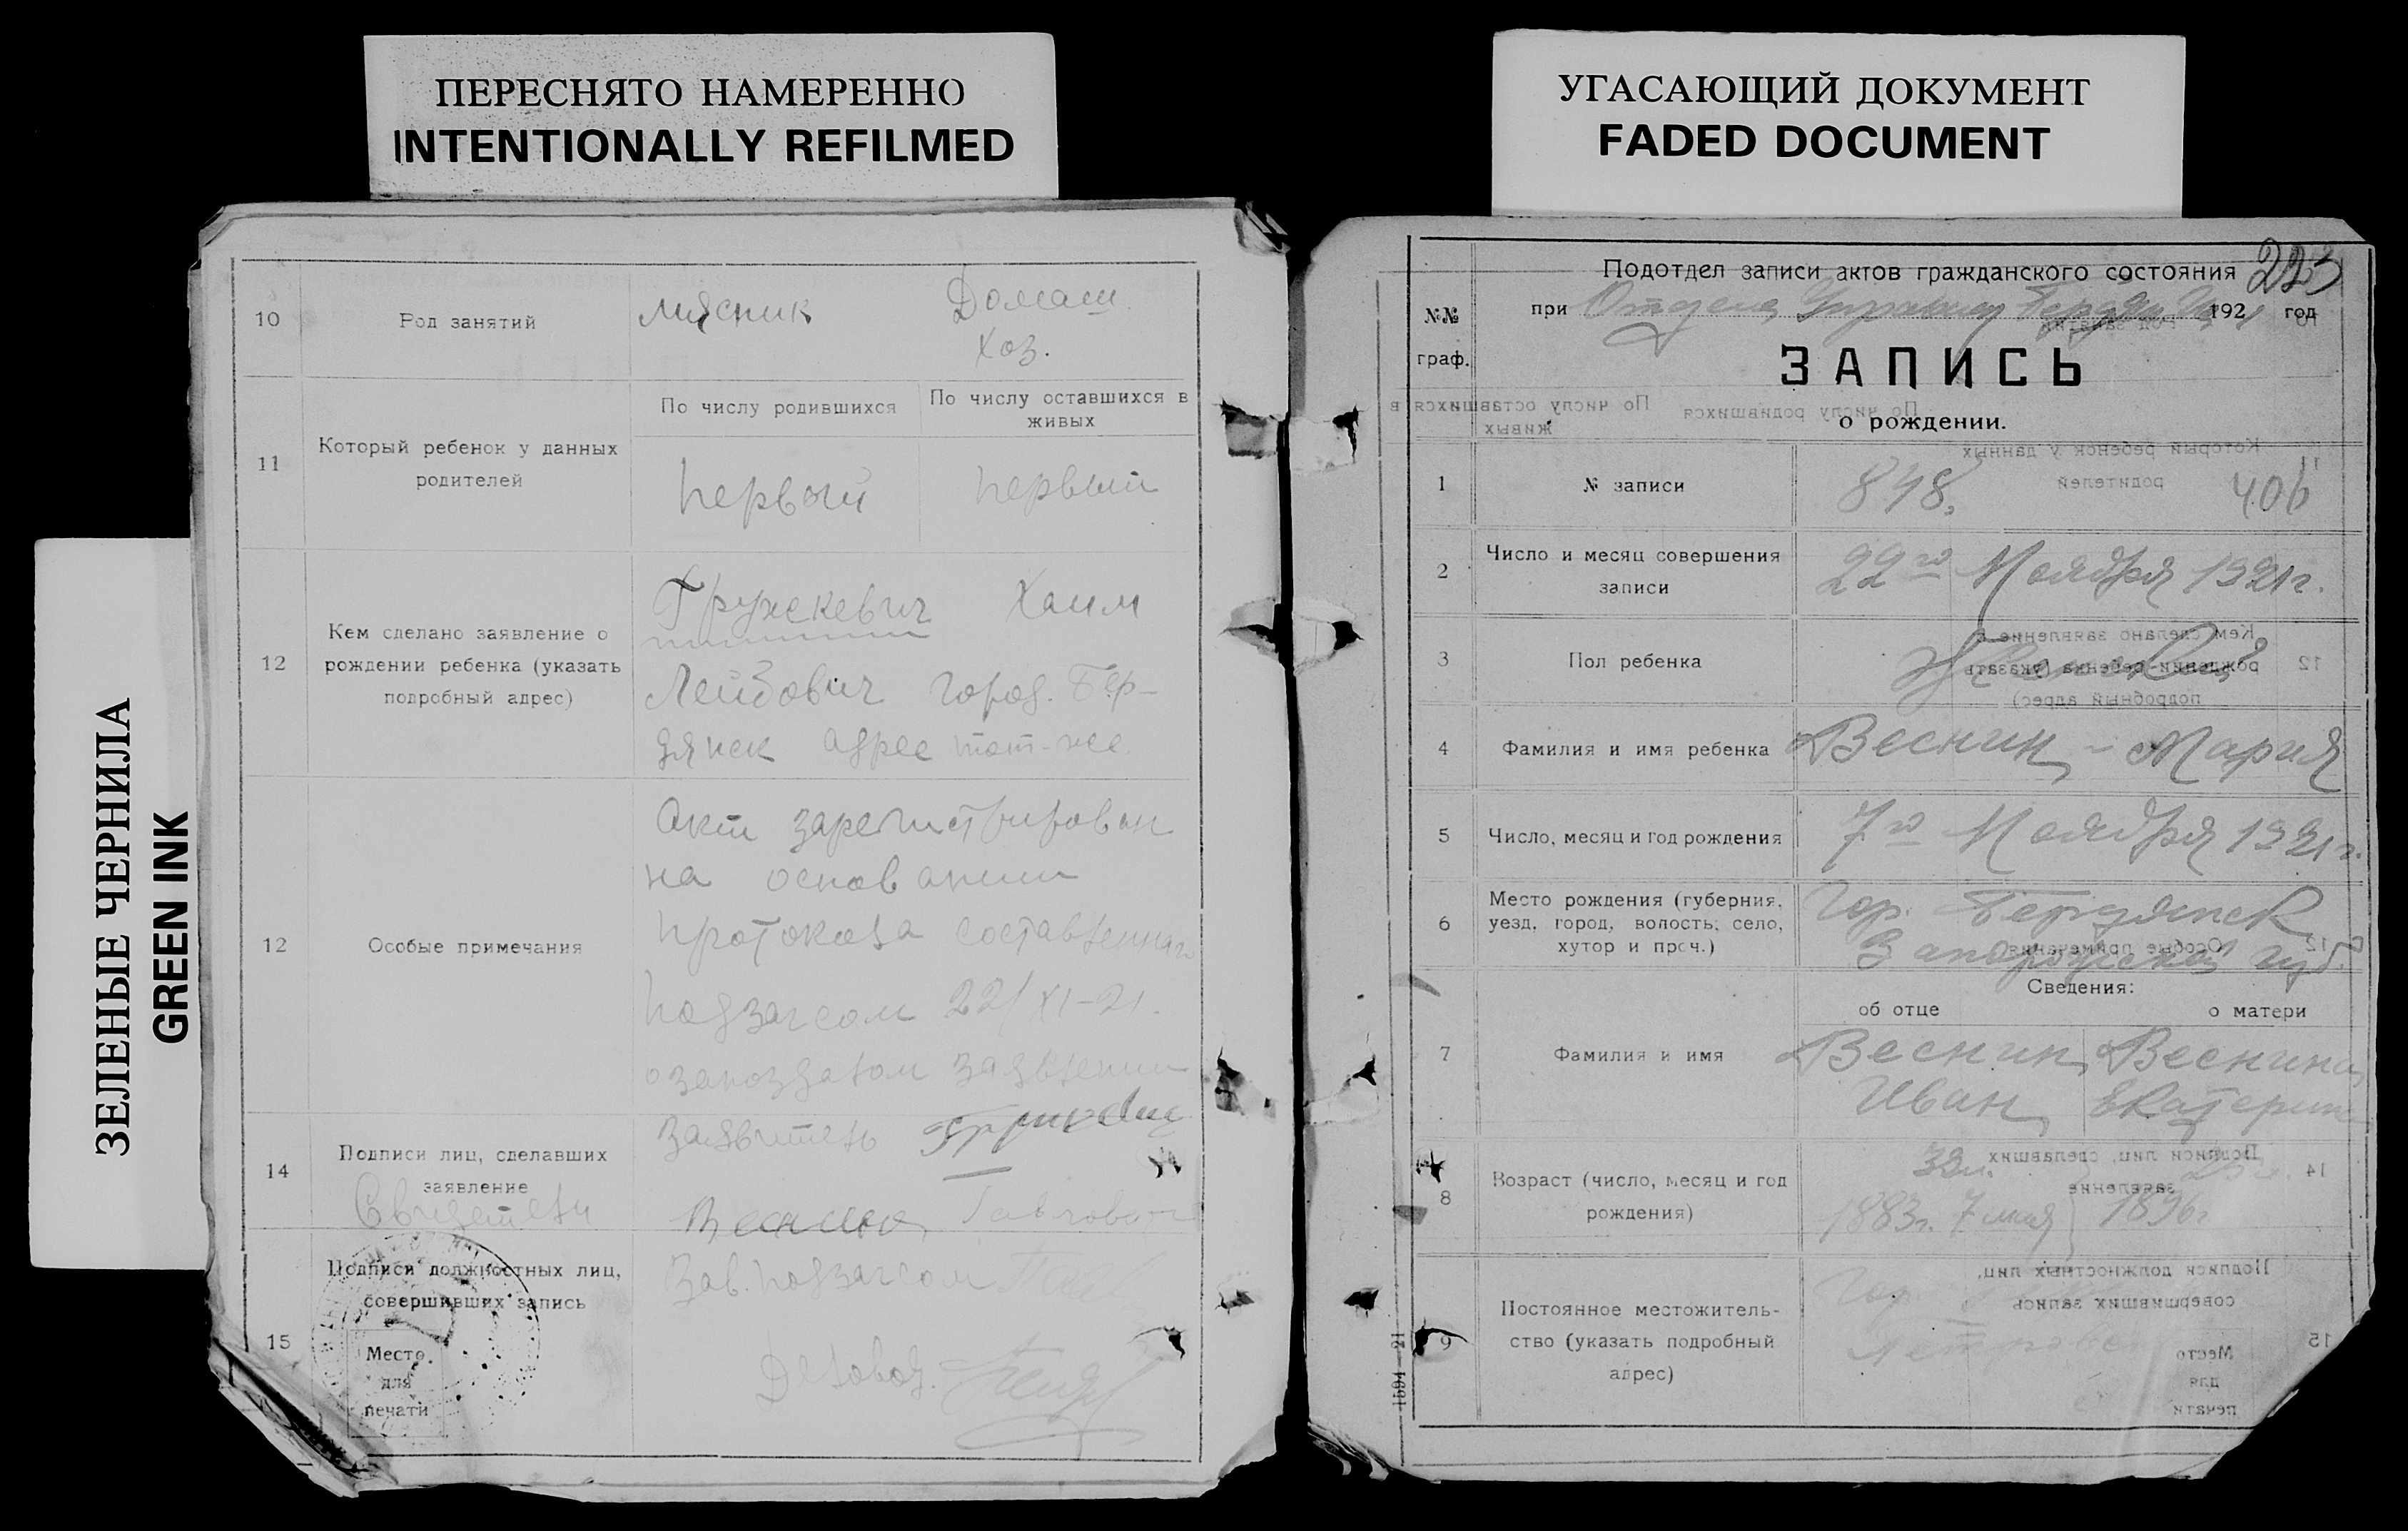 ПЕРЕСНЯТО НАМЕРЕННО
INTENTIONALLY REFILMED
ЗЕЛЕНЫЕ ЧЕРНИЛА
GREEN INK
10
Род занятий
мясник
Домаш.
хоз.
11
Который ребенок у данных
родителей
По числу родившихся
По числу оставшихся в
живых
первый
первый
12
Кем сделано заявление о
рождении ребенка (указать
подробный адрес)
Грускевич Хаим
Лейбович город. Бер-
дянск адрес тот-же.
12
Особые примечания
Акт зарегистрирован
на основании
протокола составленнаго
подзагсом 22/XI-21.
о запоздалом заявлении
14
Подписи лиц, сделавших
заявление
Свидетели
Заявитель
15
Подписи должностных лиц,
совершивших запись
Место
для
печати
Зав. подзагсом
Деловод.
УГАСАЮЩИЙ ДОКУМЕНТ
FADED DOCUMENT
223
№№
граф.
Подотдел записи актов гражданского состояния
при Отделе 192 1 год
ЗАПИСЬ
о рождении.
1
№ записи
848.
406
2
Число и месяц совершения
записи
22го Ноября 1921г.
3
Пол ребенка
4
Фамилия и имя ребенка
Веснин - Мария
5
Число, месяц и год рождения
7го Ноября 1921г.
6
Место рождения (губерния,
уезд, город, волость, село,
хутор и проч.)
Гор. Бердянск
Запорожской губ.
Сведения:
об отце
о матери
7
Фамилия и имя
Веснин
Иван
Веснина
Екатерина
8
Возраст (число, месяц и год
рождения)
38л.
1883г. 7 мая
1896г
9
Постоянное местожитель-
ство (указать подробный
адрес)
Гор.
1594—21